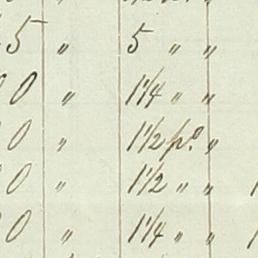 5 " 5 " "
0 " 1 1/4 " "
0 " 1 1/2 p.º "
0 " 1 1/2 " "
0 " 1 1/4 " "